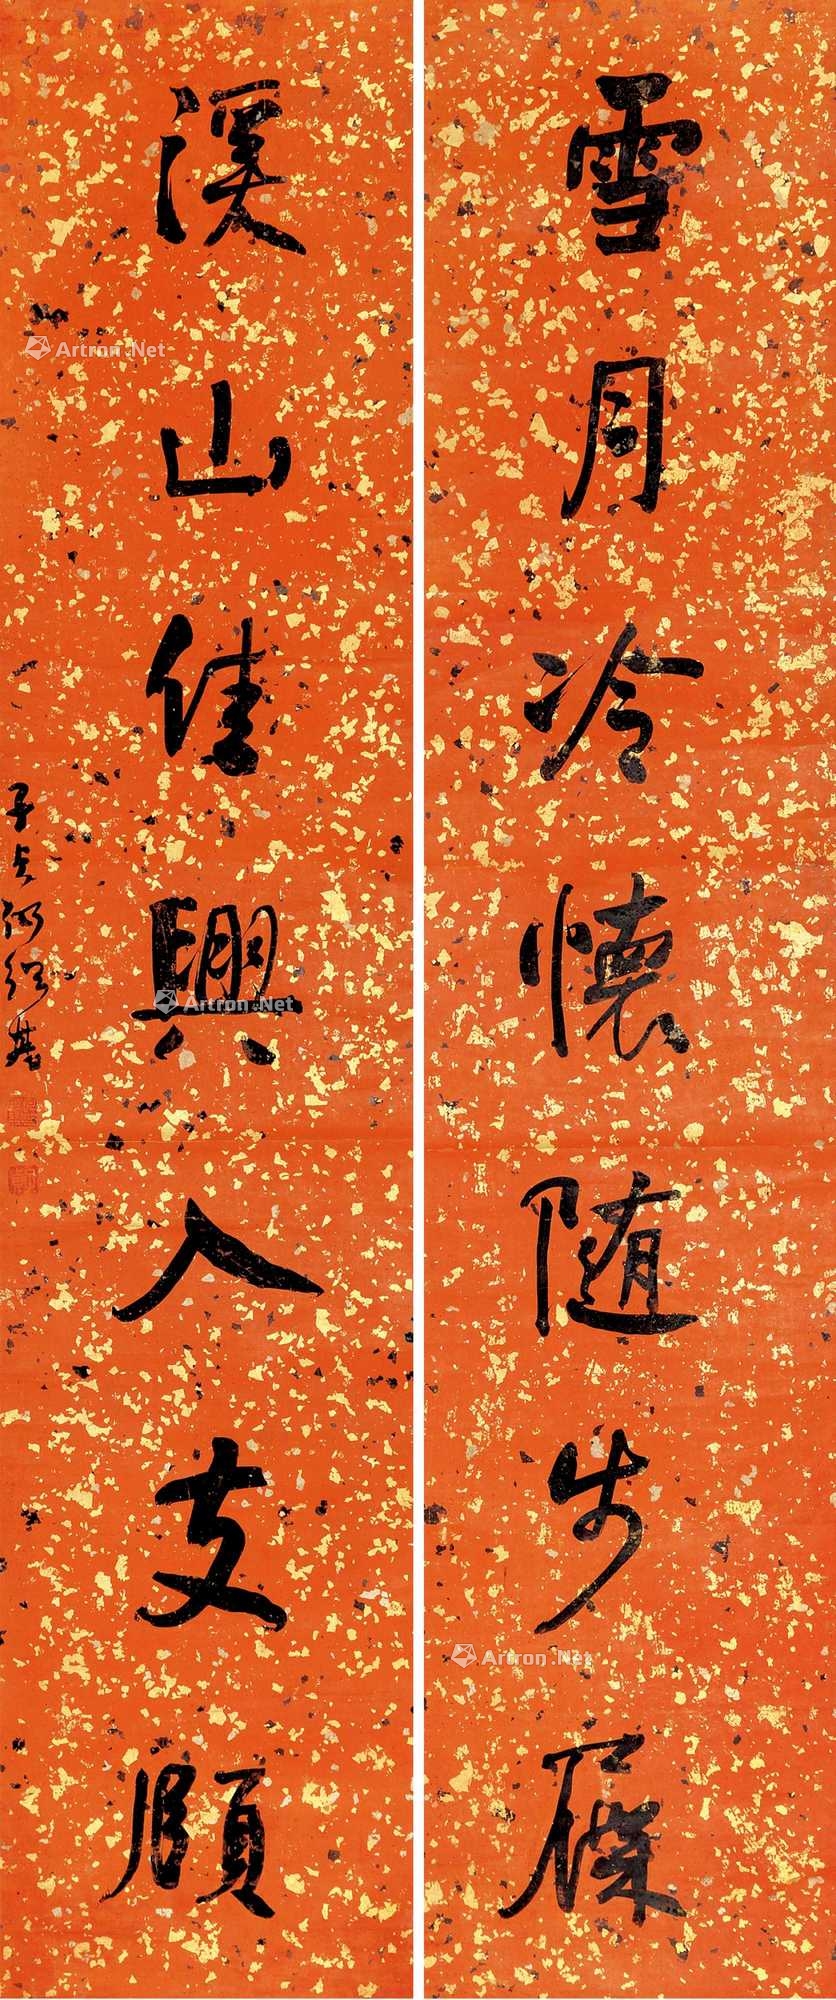 雪月冷懷随步屧
溪山佳興入支頤
子貞何紹基
Artron.Net
Artron.Net
Artron.Net